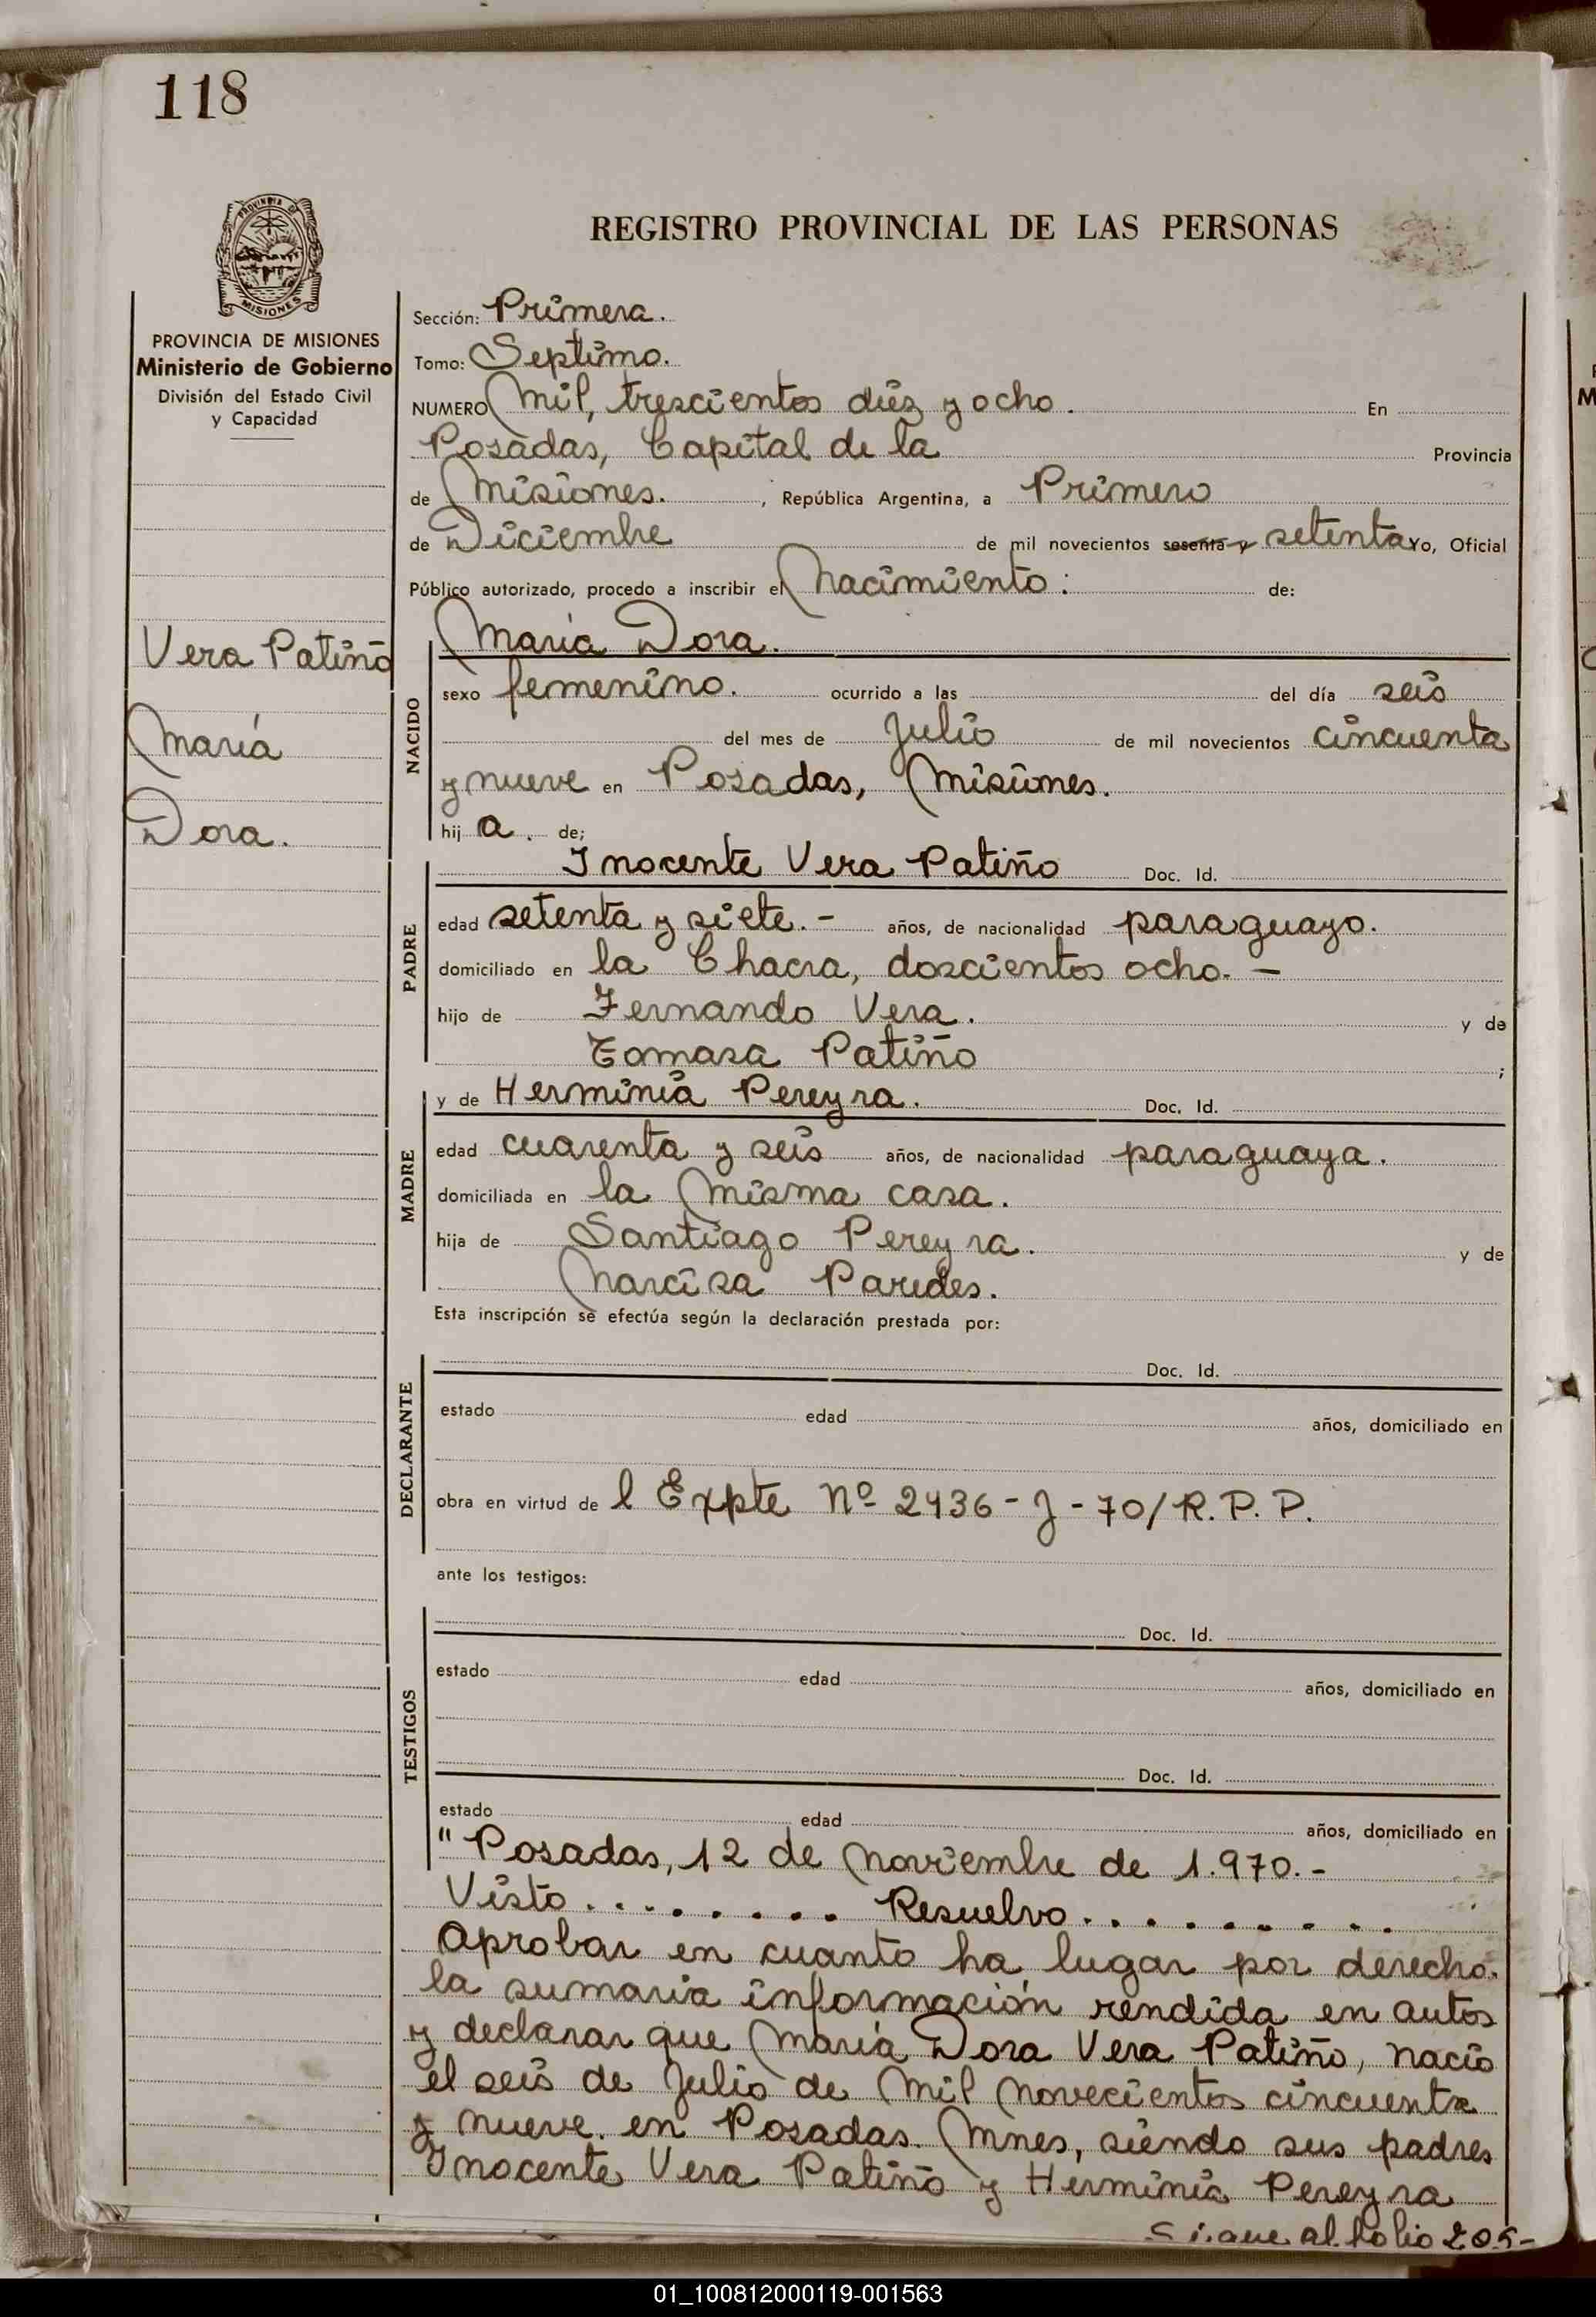 118
PROVINCIA DE
MISIONES
REGISTRO PROVINCIAL DE LAS PERSONAS
PROVINCIA DE MISIONES
Ministerio de Gobierno
División del Estado Civil
y Capacidad
Vera Patiño
María
Dora.
Sección: Primera.
Tomo: Septimo.
NUMERO Mil, trescientos diéz y ocho. En
Posadas, Capital de la Provincia
de Misiones. , República Argentina, a Primero
de Diciembre de mil novecientos sesenta y setenta Yo, Oficial
Público autorizado, procedo a inscribir el Nacimiento: de:
María Dora.
NACIDO
sexo femenino. ocurrido a las del día seis
del mes de Julio de mil novecientos cincuenta
y nueve en Posadas, Misiones.
hij a. de;
Inocente Vera Patiño Doc. Id.
PADRE
edad setenta y siete.- años, de nacionalidad paraguayo.
domiciliado en la Chacra, doscientos ocho. -
hijo de Fernando Vera. y de
Tomasa Patiño ;
y de Herminia Pereyra. Doc. Id.
MADRE
edad cuarenta y seis años, de nacionalidad paraguaya.
domiciliada en la misma casa.
hija de Santiago Pereyra. y de
Narcisa Paredes.
Esta inscripción se efectúa según la declaración prestada por:
Doc. Id.
DECLARANTE
estado edad años, domiciliado en
obra en virtud de l Expte Nº 2436-J-70/R.P.P.
ante los testigos:
Doc. Id.
TESTIGOS
estado edad años, domiciliado en
Doc. Id.
estado edad años, domiciliado en
"Posadas, 12 de Noviembre de 1.970.-
Visto......... Resuelvo.........
Aprobar en cuanto ha lugar por derecho.
la sumaria información rendida en autos
y declarar que María Dora Vera Patiño, nacio
el seis de Julio de Mil novecientos cincuenta
y nueve. en Posadas. Mnes, siendo sus padres
Inocente Vera Patiño y Herminia Pereyra
Sigue al folio 205-
01_100812000119-001563